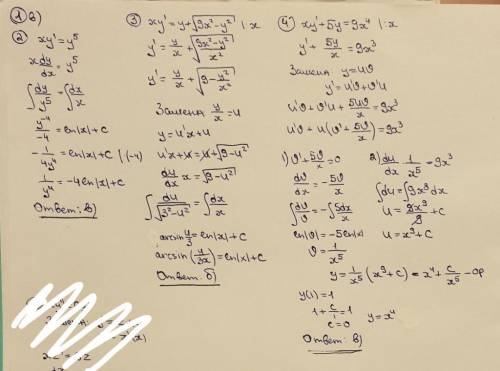 ① в)
②
xy' = y⁵
x dy/dx = y⁵
∫ dy/y⁵ = ∫ dx/x
y⁻⁴/-4 = ln|x| + C
- 1/4y⁴ = ln|x| + C | (-4)
1/y⁴ = -4 ln|x| + C
Ответ: в)
③ xy' = y + √9x² - y² | :x
y' = y/x + √(9x² - y²)/x²
y' = y/x + √9 - y²/x²
Замена: y/x = u
y = u'x + u
u'x + u = u + √9 - u²
du/dx x = √9 - u²
∫ du/√3² - u² = ∫ dx/x
arcsin u/3 = ln|x| + C
arcsin (y/3x) = ln|x| + C
Ответ: б)
④ xy' + 5y = 9x⁴ | :x
y' + 5y/x = 9x³
Замена: y = uϑ
y' = u'ϑ + ϑ'u
u'ϑ + ϑ'u + 5uϑ/x = 9x³
u'ϑ + u(ϑ' + 5ϑ/x) = 9x³
1) ϑ' + 5ϑ/x = 0
dϑ/dx = - 5ϑ/x
∫ dϑ/ϑ = -∫ 5dx/x
ln|ϑ| = -5 ln|x|
ϑ = 1/x⁵
2) du/dx 1/x⁵ = 9x³
∫ du = ∫ 9x⁸ dx
u = 9x⁹/9 + C
u = x⁹ + C
y = 1/x⁵ (x⁹ + C) = x⁴ + C/x⁵ - ор
y(1) = 1
1 + C/1 = 1
C = 0
y = x⁴
Ответ: в)